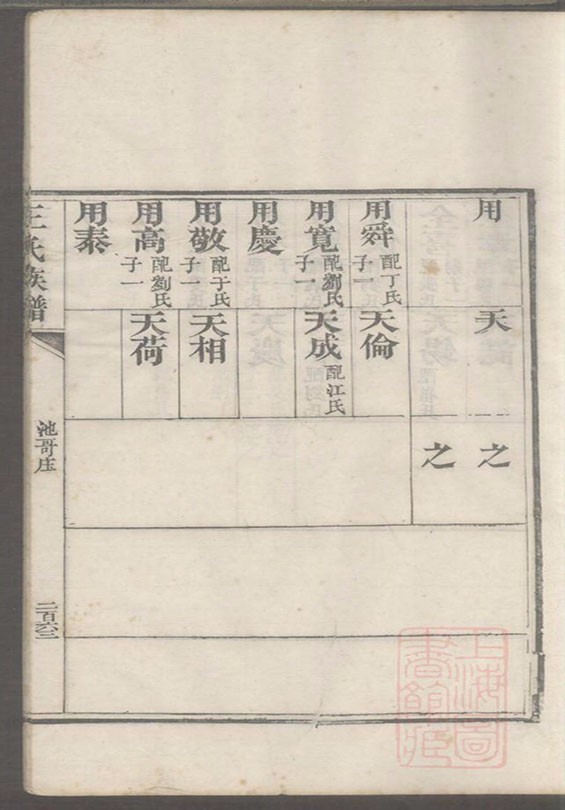 用
天
之
之
用舜 配丁氏 子一
天倫
用寬 配劉氏 子一
天成 配江氏
用慶
用敬 配于氏 子一
天相
用高 配劉氏 子一
天荷
用泰
王氏族譜
池哥庄
二百六三
上海圖書館藏